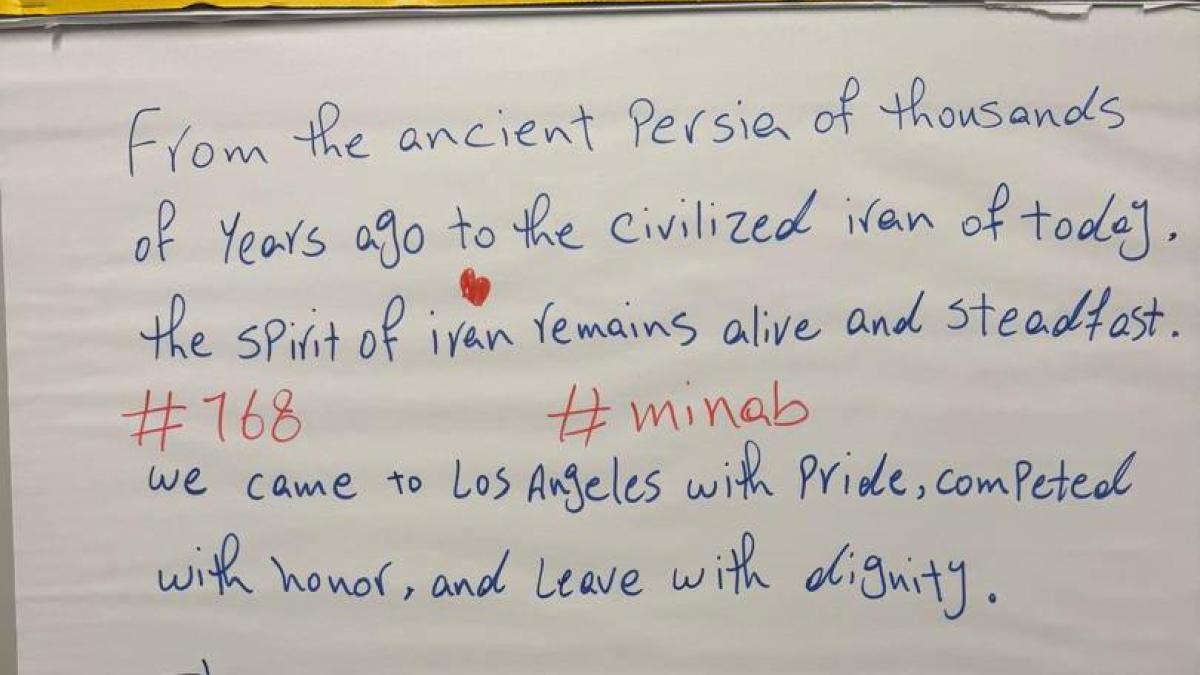 From the ancient Persia of thousands
of Years ago to the civilized iran of today.
the spirit of iran remains alive and steadfast.
#168 #minab
we came to Los Angeles with Pride, competed
with honor, and Leave with dignity.